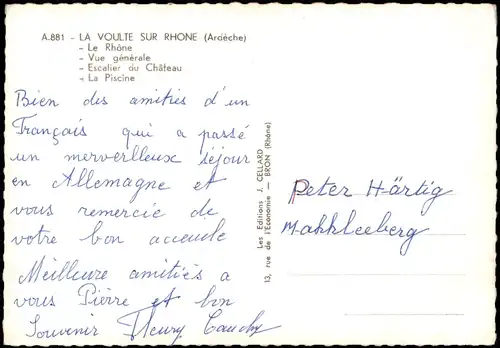 A.881 - LA VOULTE SUR RHONE (Ardèche)
- Le Rhône
- Vue générale
- Escalier du Château
- La Piscine
Bien des amitiés d'un
Français qui a passé
un merverlleux séjour
en Allemagne et
vous remercie de
votre bon accueule
Meilleure amitiés a
vous Pierre et bon
Souvenir Fleury Cauchy
Les Editions J. CELLARD
13, rue de l'Economie — BRON (Rhône)
Peter Härtig
Makkleeberg